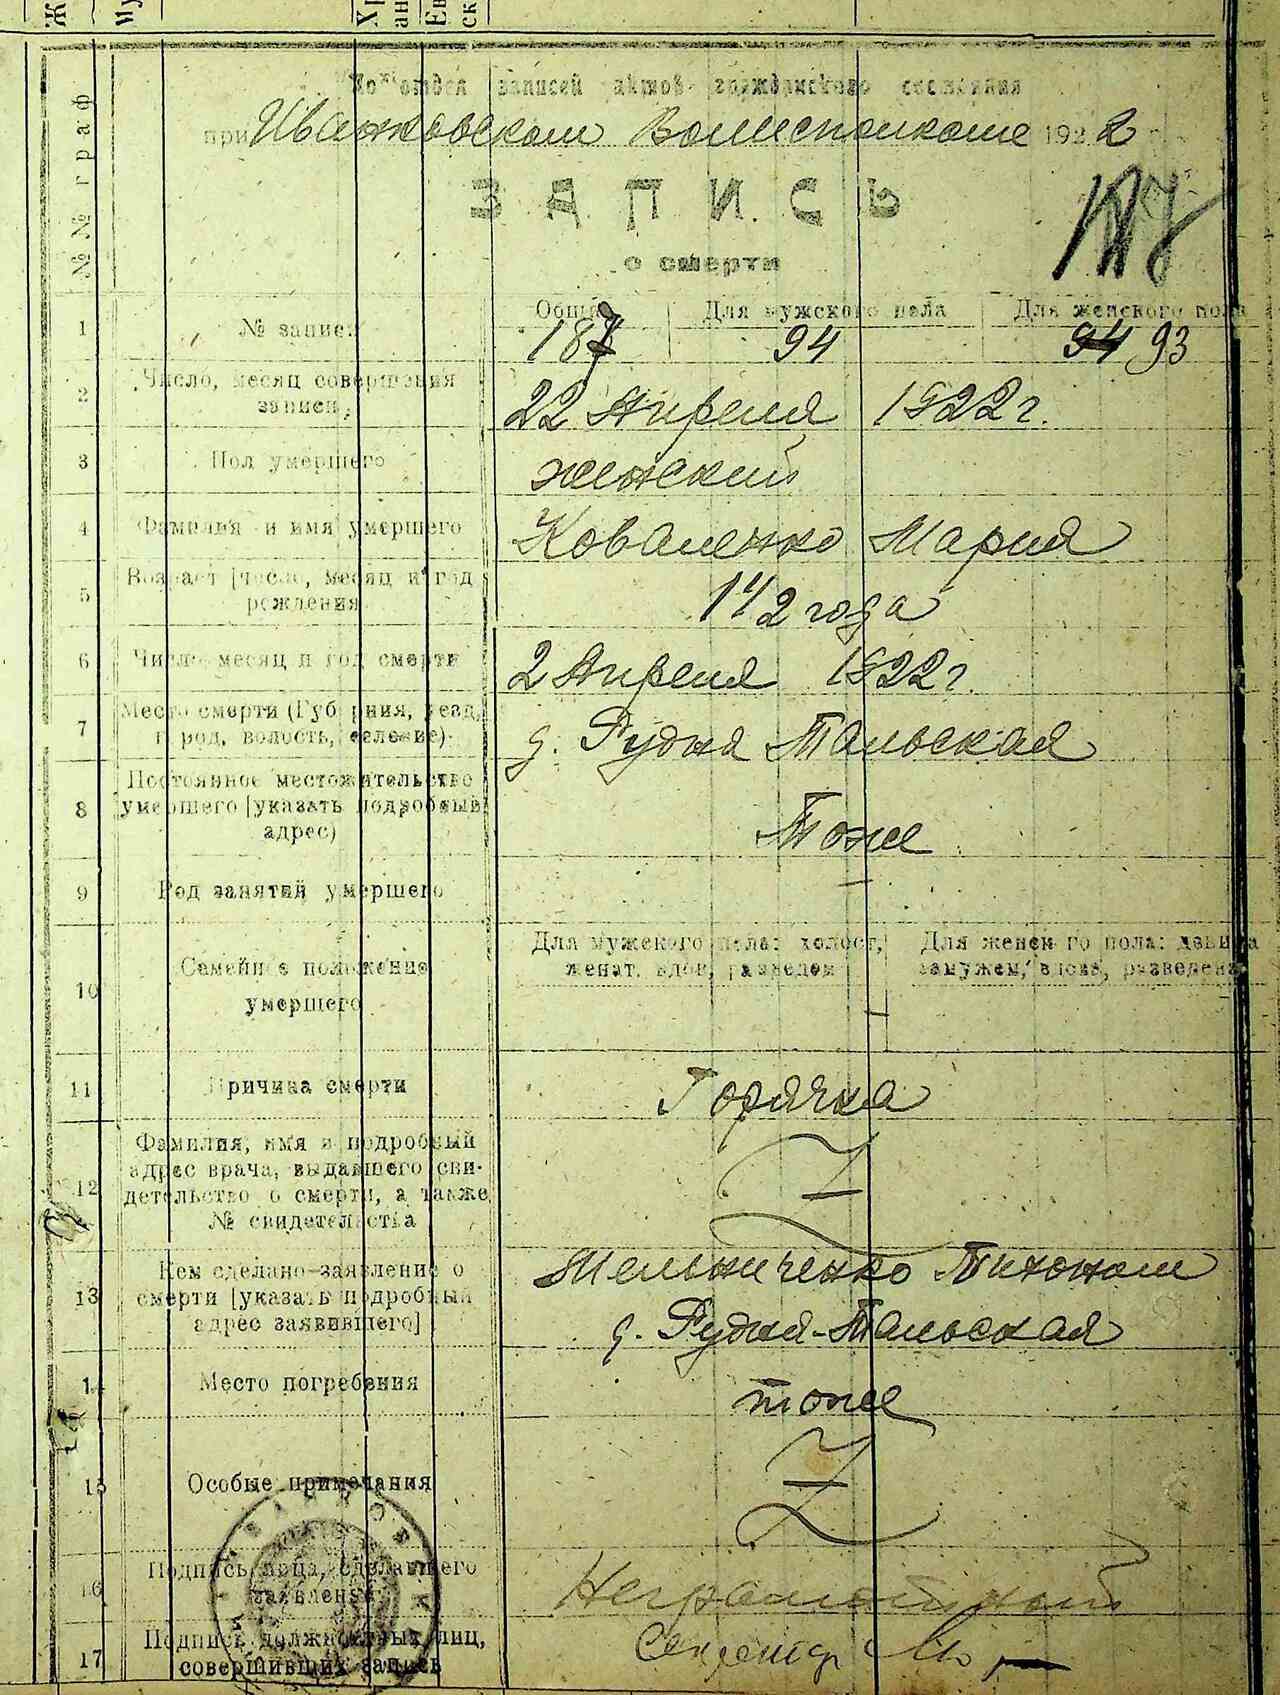 Подотдел записей актов гражданского состояния
при Иванковском Волисполкоме 1922
ЗАПИСЬ
о смерти
№№ граф
Общий Для мужского пола Для женского пола
1 № записи 187 94 93
2 Число, месяц совершения
записи, 22 Апреля 1922 г.
3 Пол умершего женский
4 Фамилия и имя умершего Коваленко Мария
5 Возраст [число, месяц и год
рождения 1 1/2 года
6 Число месяц и год смерти 2 Апреля 1922 г.
7 Место смерти (Губерния, уезд,
город, волость, селение) д. Рудня Тальская
8 Постоянное местожительство
умершего [указать подробный
адрес) Тоже
9 Род занятий умершего –
10 Семейное положение
умершего
Для мужского пола: холост,
женат, вдов, разведен
Для женского пола: девица
замужем, вдова, разведена
–
11 Причина смерти Горячка
12 Фамилия, имя и подробный
адрес врача, выдавшего сви-
детельство о смерти, а также
№ свидетельства
13 Кем сделано заявление о
смерти [указать подробный
адрес заявившего]
Мельниченко Тихоном
д. Рудня-Тальская
14 Место погребения тоже
15 Особые примечания
16 Подпись лица, сделавшего
заявление Неграмотный
17 Подпись должностных лиц,
совершивших запись Секретар